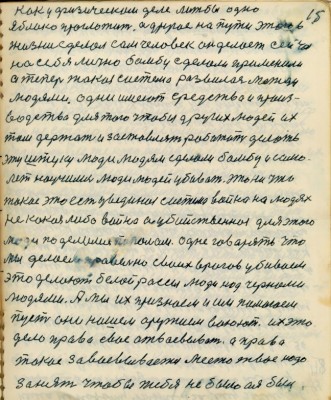 15
как у физическом деле
яблоко проглотит, а другое на пути это в
жизни сделал сам человек он делает сейчас
на себя лично бомбу сделали применили
а теперь такая система развилась между
людями, одни имеют средства и произ-
водства для того чтобы других людей их
там держат и заставлят работать делать
эту штуку люди людям сделали бомбу и само-
лет научили люди людей убивать. Это ни что
такое это есть система война на людях
не какая либо война а убийственная для этого
люди поделились одне говарять что
мы делаем правильно своих врагов убиваем
это делают белой рассы люди над черными
людями. А мы их признаем и им помогаем
пусть они нашем оружием воюют. их это
дело права свое отваевывать. а права
такое заваевываеться место твое надо
занять чтобы тебя не было а я был